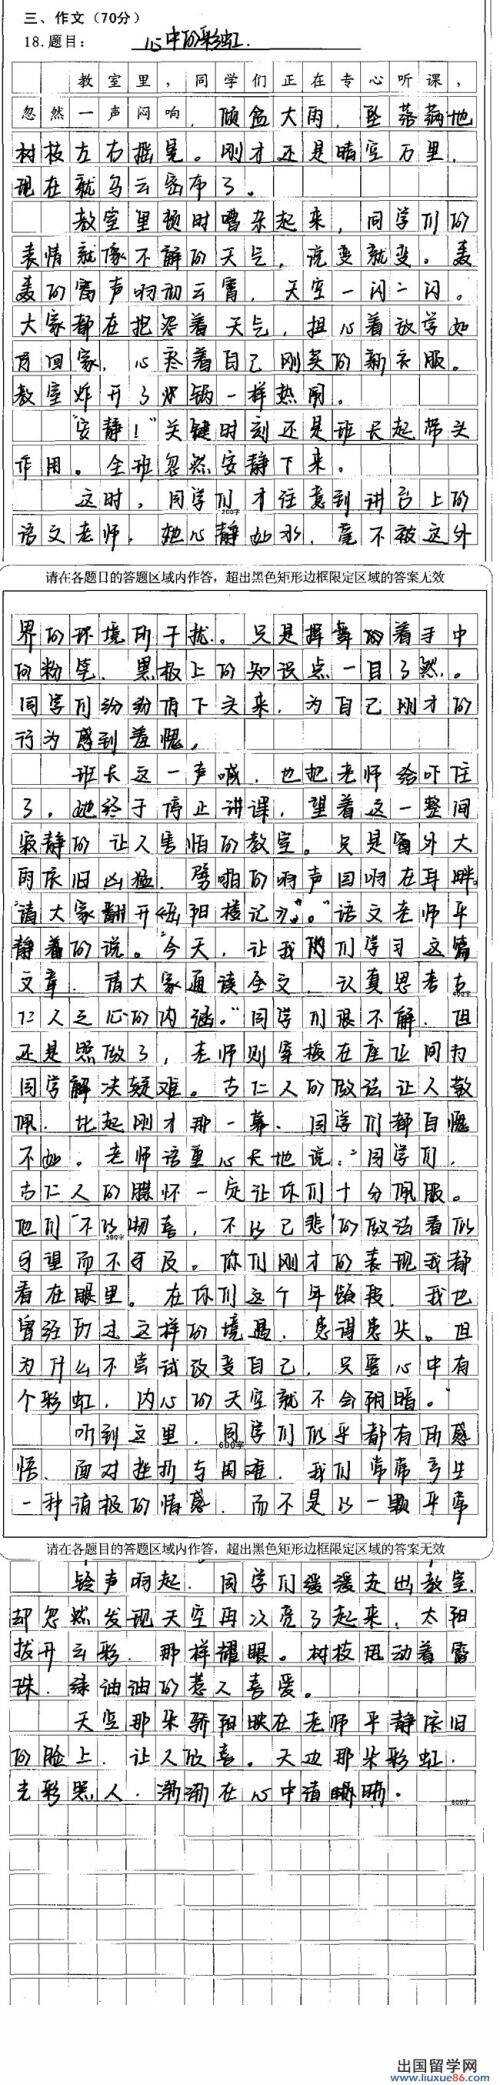 三、作文（70分）
18.题目：心中的彩虹.
教室里，同学们正在专心听课，
忽然一声闷响，倾盆大雨，坠落满地
树枝左右摇晃。刚才还是晴空万里，
现在就乌云密布了。
教室里顿时嘈杂起来，同学们的
表情就像不解的天气，说变就变。轰
轰的雷声响彻云霄，天空一闪一闪。
大家都在抱怨着天气，担心着放学如
何回家，心疼着自己刚买的新衣服。
教室炸开了火锅一样热闹。
“安静！”关键时刻还是班长起带头
作用。全班忽然安静下来。
这时，同学们才注意到讲台上的
200字
语文老师，她心静如水，毫不被这外
请在各题目的答题区域内作答，超出黑色矩形边框限定区域的答案无效
界的环境所干扰。只是挥舞的着手中
的粉笔，黑板上的知识点一目了然。
同学们纷纷低下头来，为自己刚才的
行为感到羞愧。
班长这一声喊，也把老师给吓住
了。她终于停止讲课，望着这一整间
寂静的让人害怕的教室。只是窗外大
雨依旧凶猛，劈啪的响声回响在耳畔。
“请大家翻开《岳阳楼记》。”语文老师平
静着的说。“今天，让我们学习这篇
文章，请大家通读全文，认真思考古
仁人之心的内涵。”同学们很不解，但
还是照做了，老师则穿梭在座位间为
同学解决疑难。古仁人的做法让人敬
佩，比起刚才那一幕，同学们都自愧
不如。老师语重心长地说：“同学们，
古仁人的胸怀一定让你们十分佩服。
他们‘不以物喜，不以己悲’的做法看似
可望而不可及。你们刚才的表现我都
看在眼里。在你们这个年龄段，我也
曾经历过这样的境遇，患得患失。但
为什么不尝试改变自己，只要心中有
个彩虹，内心的天空就不会阴暗。”
听到这里，同学们似乎都有所感
600字
悟，面对挫折与困难，我们常常产生
一种消极的情感，而不是以一颗平常
请在各题目的答题区域内作答，超出黑色矩形边框限定区域的答案无效
铃声响起，同学们缓缓走出教室，
却忽然发现天空再次亮了起来，太阳
拨开云彩，那样耀眼。树枝甩动着露
珠，绿油油的惹人喜爱。
天空那朵骄阳映在老师平静依旧
的脸上，让人欣喜。天边那朵彩虹，
光彩照人，渐渐在心中清晰。
800字
出国留学网
www.liuxue86.com